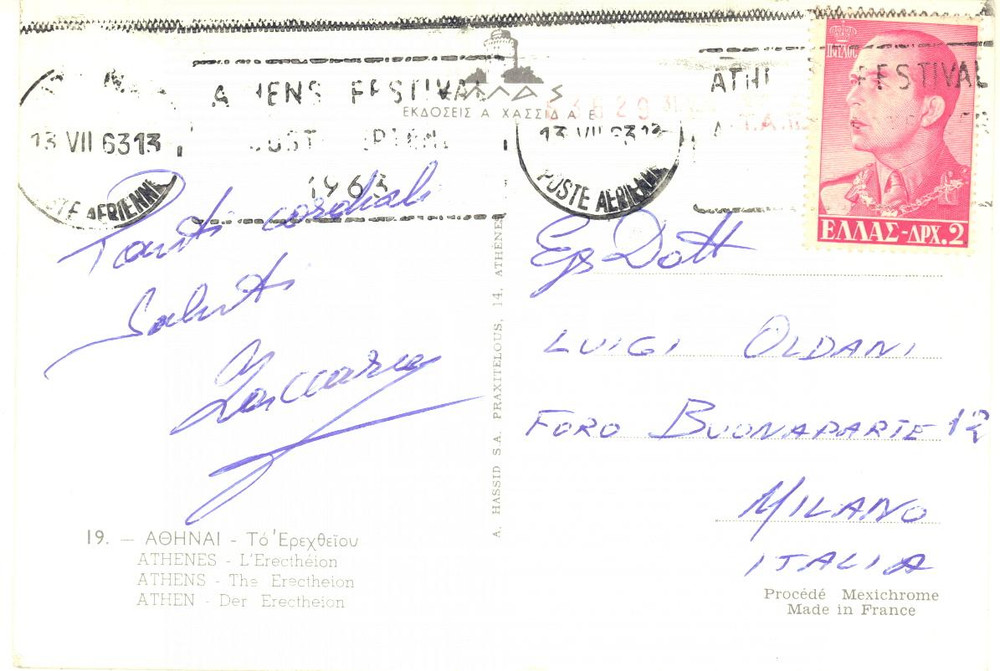 ΕΛΛΑΣ
ΕΚΔΟΣΕΙΣ Α ΧΑΣΣΙΔ Α Ε
ATHENS FESTIVAL
1963
13 VII 63 13
POSTE AERIENNE
13 VII 63 13
POSTE AERIENNE
ATHENS FESTIVAL
ΠΑΥΛΟΣ
ΕΛΛΑΣ-ΔΡΧ.2
cordiali
Saluti
Egr Dott
LUIGI OLDANI
FORO BUONAPARTE 12
MILANO
ITALIA
A. HASSID S.A. PRAXITELOUS, 14, ATHENES
19. - ΑΘΗΝΑΙ - Τό Ἐρεχθεῖου
ATHENES - L'Erecthéion
ATHENS - The Erectheion
ATHEN - Der Erectheion
Procédé Mexichrome
Made in France